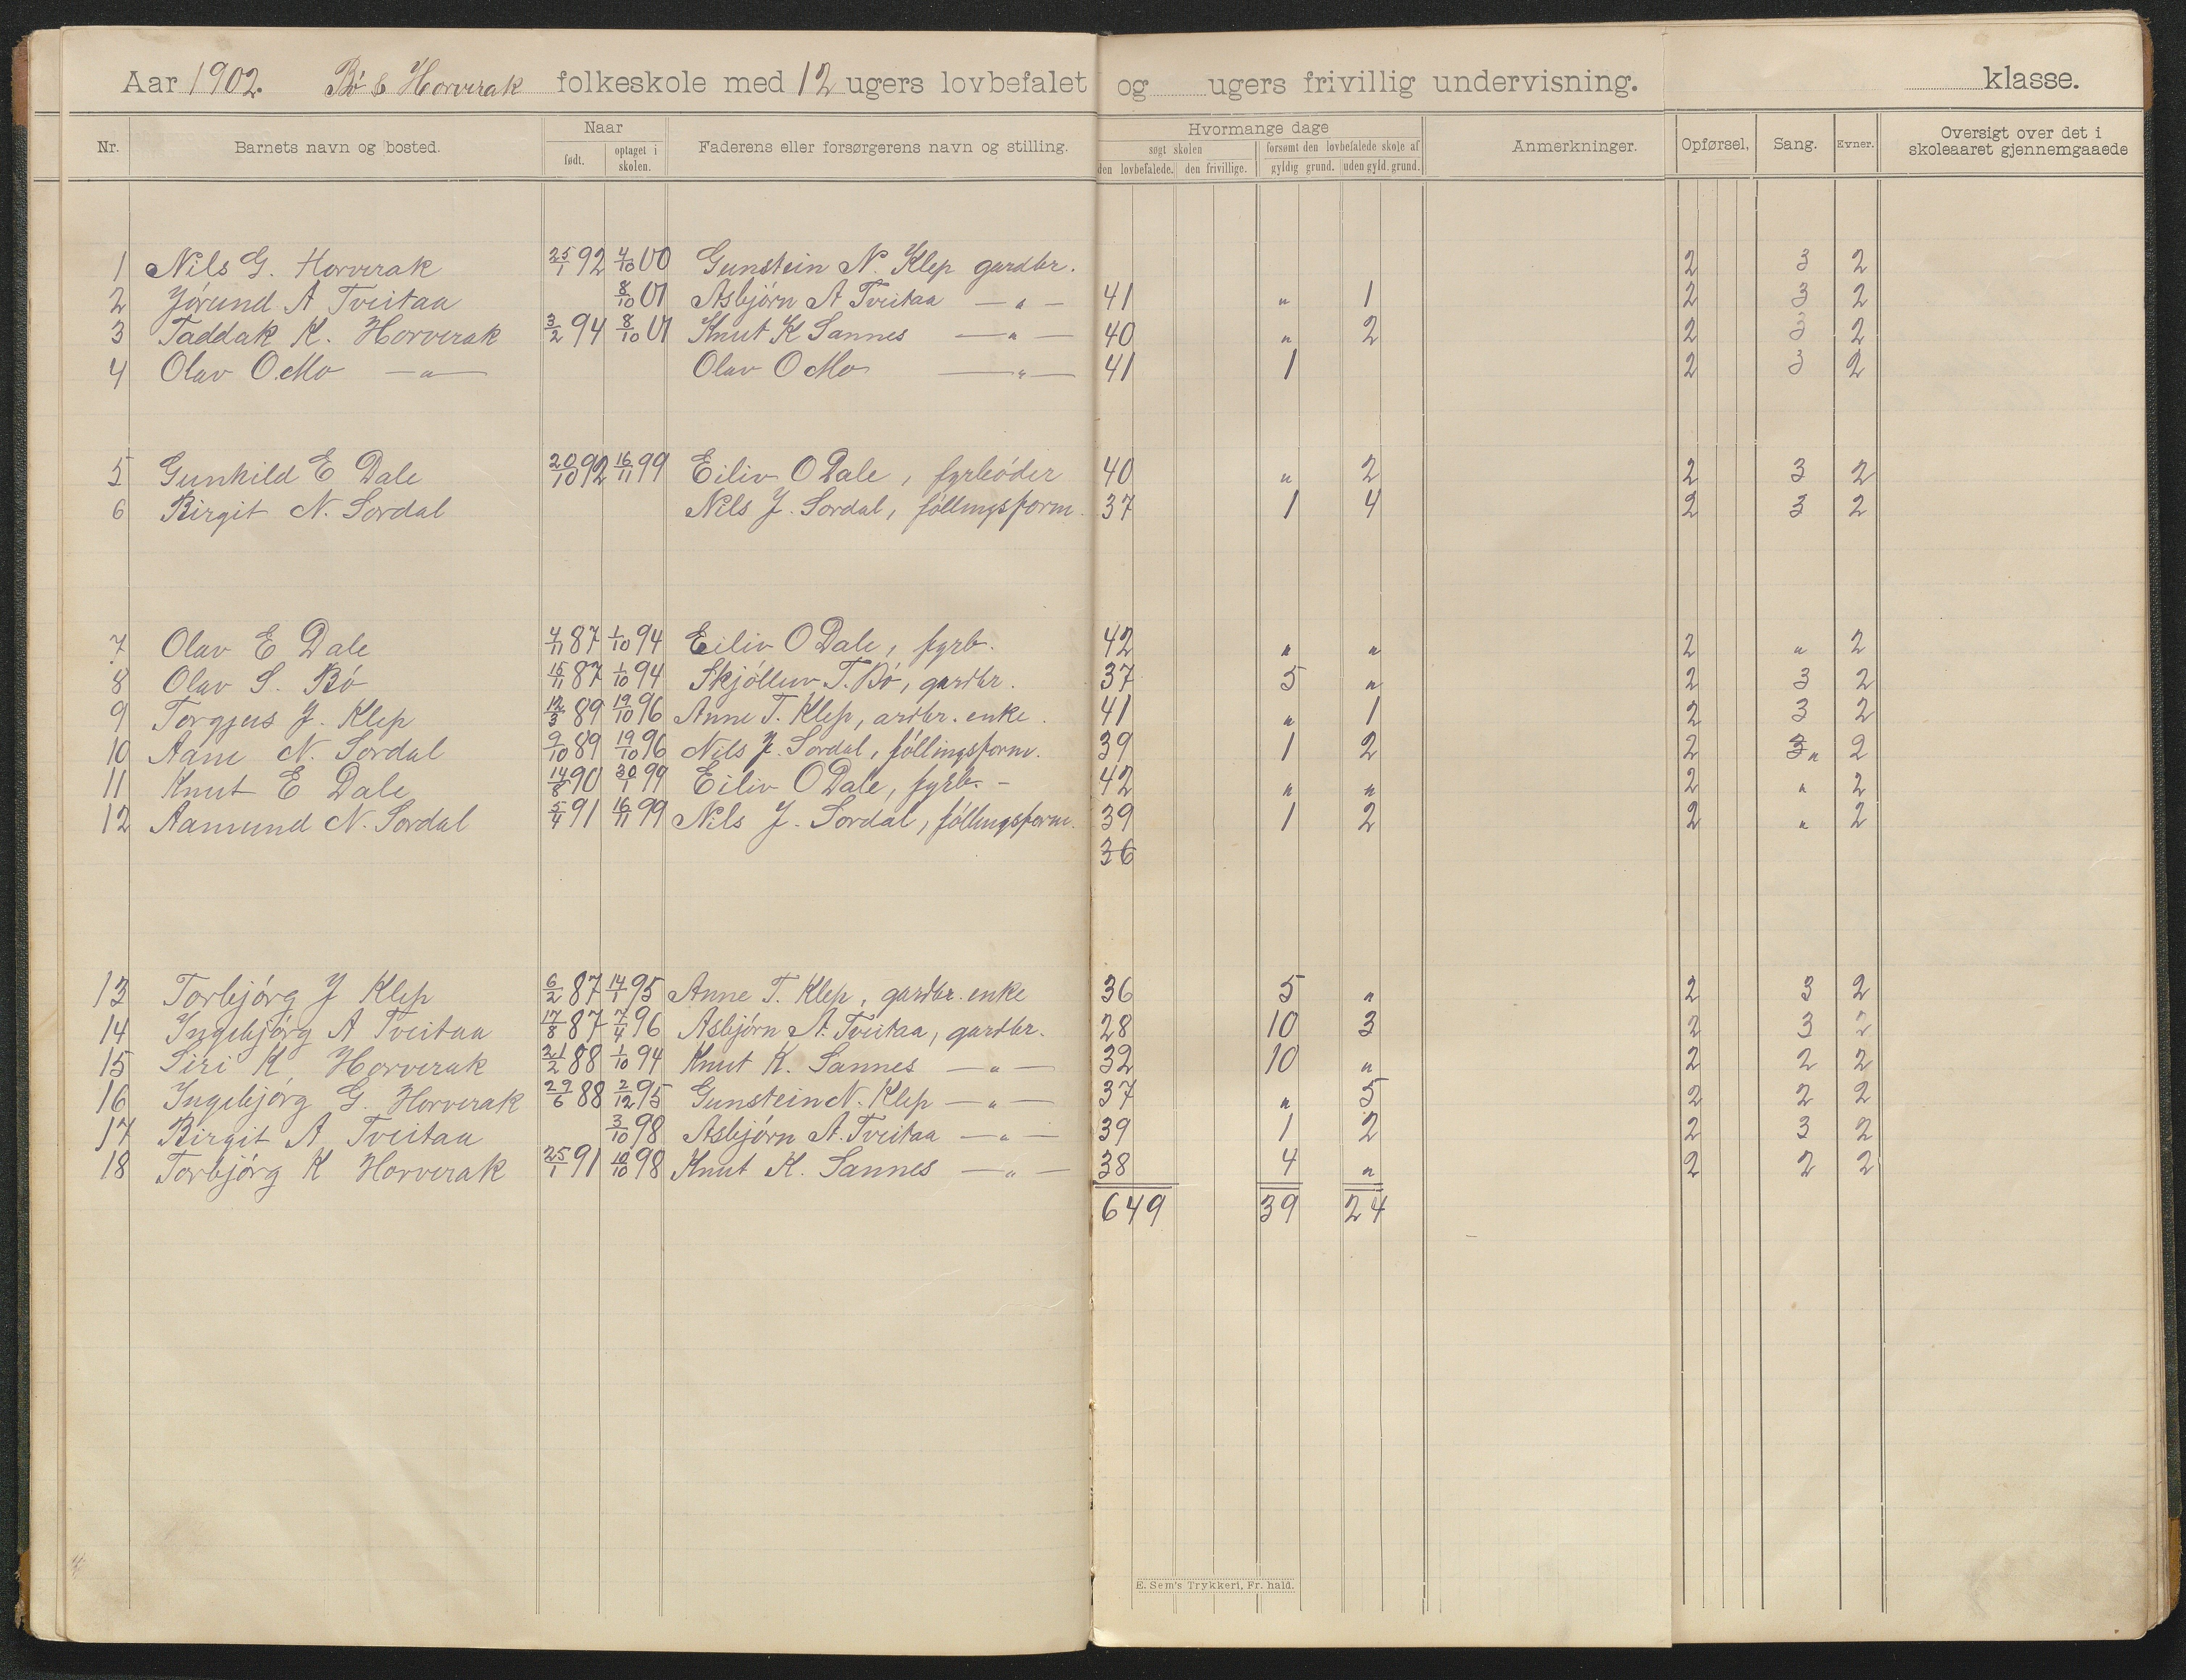 Aar 1902. Bø & Horverak folkeskole med 12 ugers lovbefalet og ugers frivillig undervisning. klasse.
Nr. Barnets navn og bosted. Naar født. optaget i skolen. Faderens eller forsørgerens navn og stilling. Hvormange dage søgt skolen den lovbefalede. den frivillige. forsømt den lovbefalede skole af gyldig grund. uden gyld. grund. Anmerkninger. Opførsel, Sang. Evner. Oversigt over det i skoleaaret gjennemgaaede
1 Nils G. Horverak 25/1 92 4/10 00 Gunstein N. Klep gardbr. 2 3 2
2 Jórund A Tveitaa 8/10 01 Asbjórn A Tveitaa — " — 41 " 1 2 3 2
3 Taddak K. Horverak 3/2 94 8/10 01 Knut K Sannes — " — 40 " 2 2 3 2
4 Olav O. Mo — " — Olav O Mo — " — 41 1 2 3 2
5 Gunhild E Dale 20/10 92 16/11 99 Eiliv O Dale, fyrbóder 40 " 2 2 3 2
6 Birgit N. Sordal Nils J. Sordal, fóllingsform. 37 1 4 2 3 2
7 Olav E Dale 4/11 87 1/10 94 Eiliv O Dale, fyrb. 42 " " 2 " 2
8 Olav S. Bó 15/11 87 1/10 94 Skjólluv T. Bó, gardbr. 37 5 " 2 3 2
9 Torgjus J. Klep 12/3 89 19/10 96 Anne T. Klep, ardbr. enke. 41 " 1 2 3 2
10 Aani N. Sordal 9/10 89 19/10 96 Nils J. Sordal, fóllingsform. 39 1 2 2 3 " 2
11 Knut E Dale 14/8 90 30/1 99 Eiliv O Dale, fyrb. - 42 " " 2 " 2
12 Aamund N. Sordal 5/4 91 16/11 99 Nils J. Sordal, fóllingsform. 39 1 2 2 " 2
36
13 Torbjórg J Klep 6/2 87 14/1 95 Anne T. Klep, gardbr. enke 36 5 " 2 3 2
14 Ingebjórg A Tveitaa 17/8 87 7/4 96 Asbjórn A. Tveitaa, gardbr. 28 10 3 2 3 2
15 Siri K. Horverak 21/2 88 1/10 94 Knut K. Sannes — " — 32 10 " 2 2 2
16 Ingebjórg G. Horverak 29/6 88 2/12 95 Gunstein N. Klep — " — 37 " 5 2 2 2
17 Birgit A. Tveitaa 3/10 98 Asbjórn A. Tveitaa — " — 39 1 2 2 3 2
18 Torbjórg K Horverak 25/1 91 10/10 98 Knut K. Sannes — " — 38 4 " 2 2 2
649 39 24
E. Sem's Trykkeri, Fr. hald.